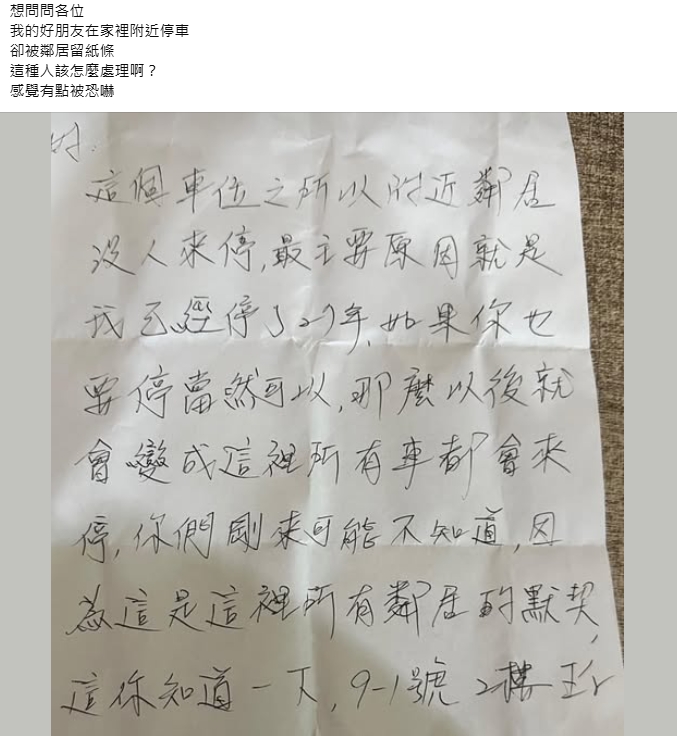 想問問各位
我的好朋友在家裡附近停車
卻被鄰居留紙條
這種人該怎麼處理啊？
感覺有點被恐嚇
這個車位之所以附近鄰居
沒人來停,最主要原因就是
我已經停了27年,如果你也
要停當然可以,那麼以後就
會變成這裡所有車都會來
停,你們剛來可能不知道,因
為這是這裡所有鄰居的默契,
這你知道一下,9-1號 2樓 王